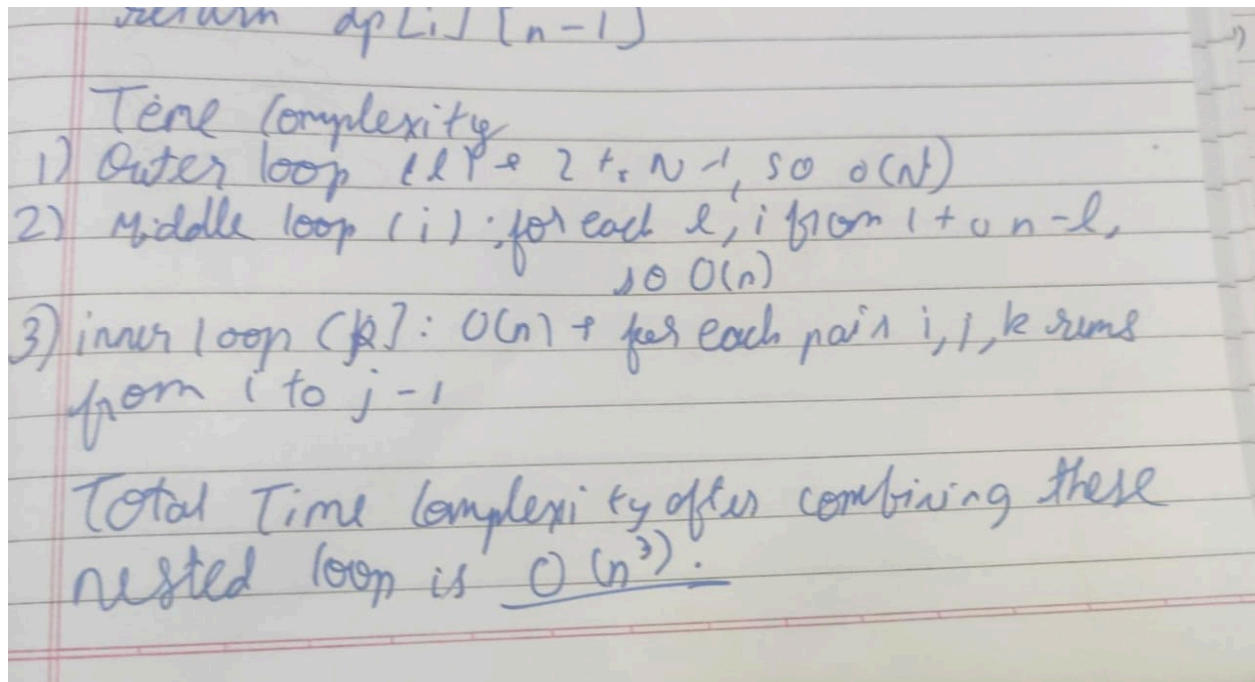 return dp[i][n-1]
Time Complexity
1) Outer loop (l) 2 to N-1, so O(N)
2) Middle loop (i): for each l, i from 1 to n-l,
so O(n)
3) inner loop (k): O(n) + for each pair i, j, k runs
from i to j-1
Total Time Complexity after combining these
nested loop is O(n³).